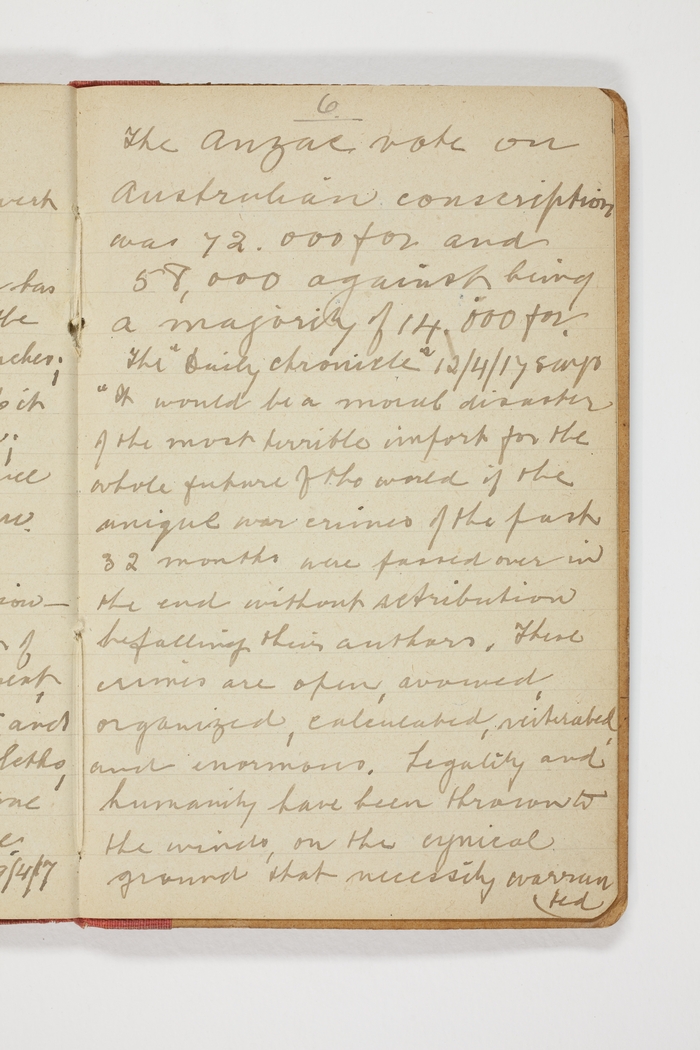 6
The Anzac vote on
Australian conscription
was 72.000 for and
58,000 against being
a majority of 14.000 for.
The "Daily Chronicle" 12/4/17 says
"It would be a moral disaster
of the most terrible import for the
whole future of the world if the
unique war crimes of the past
32 months were passed over in
the end without retribution
befalling their authors. These
crimes are open, avowed,
organized, calculated, reiterated,
and enormous. Legality and
humanity have been thrown to
the winds, on the cynical
ground that necessity warran
(ted
has
the
it
of
and
/4/17